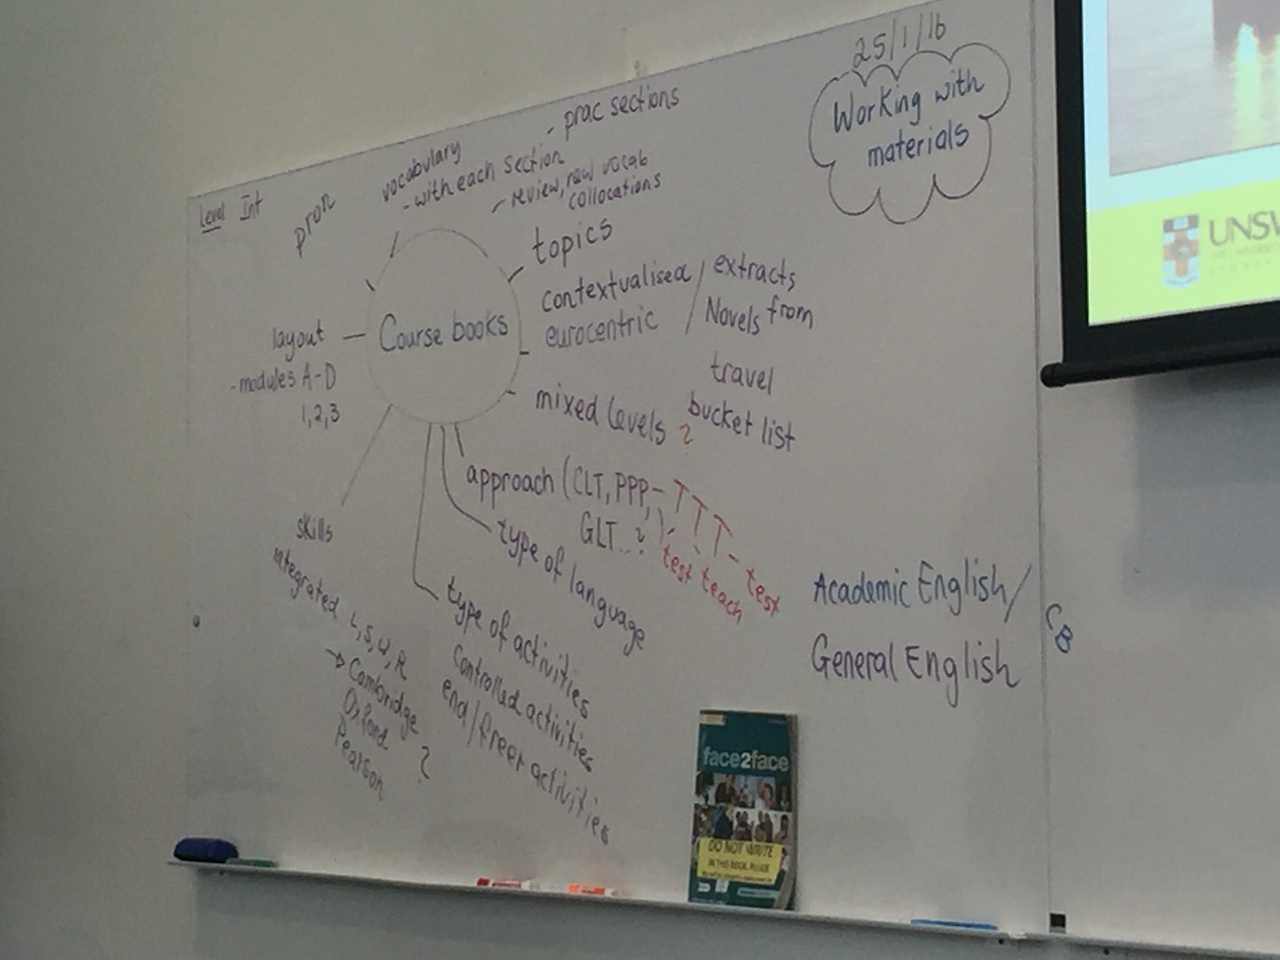 25/1/16
Working with
materials
Level Int
pron
vocabulary
- with each section
- prac sections
- review, new vocab
collocations
topics
contextualised / extracts
eurocentric / Novels from
travel
bucket list
mixed levels ?
Course books
layout
- modules A-D
1,2,3
approach (CLT, PPP, - T T T
GLT...?)
test teach - test
type of language
type of activities
controlled activities
end/freer activities
skills
integrated L, S, W, R
→ Cambridge
Oxford ?
Pearson
Academic English/
General English
CB
face2face
DO NOT WRITE
IN THIS BOOK PLEASE
UNSW